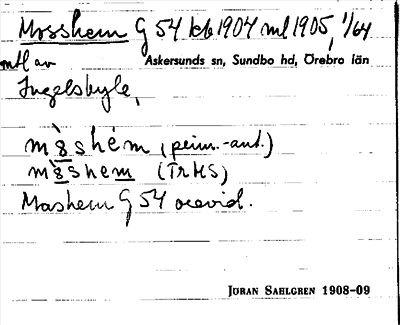 Mosshem G 54 kb 1904 ml 1905, 1/64
mtl av Askersunds sn, Sundbo hd, Örebro län
Ingelsbyle,
mo̊shem (peim.-ant.)
mo̊shem (TrHS)
Moshem G 54 orevid.
JÖRAN SAHLGREN 1908-09